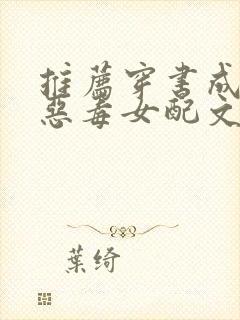 推薦穿書成
惡毒女配文
葉綺